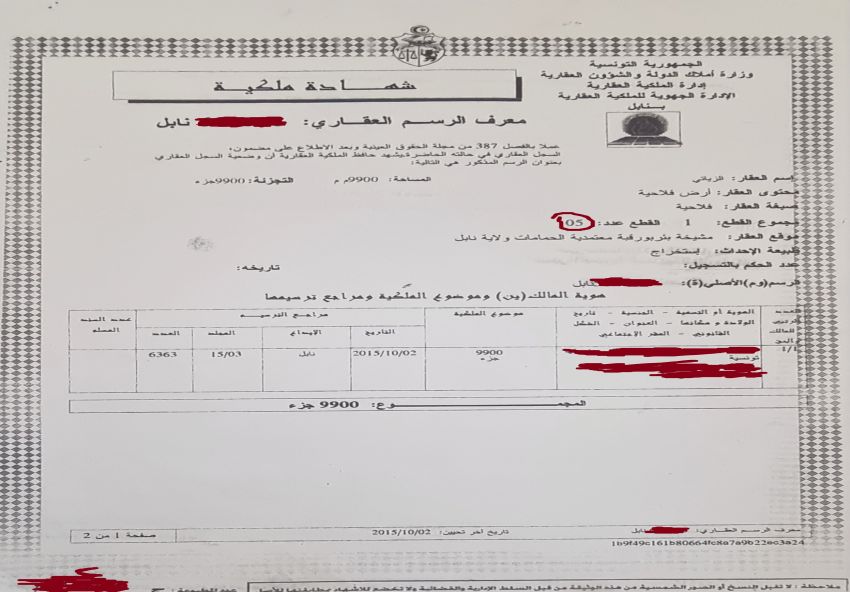 الجمهورية التونسية
وزارة أملاك الدولة والشؤون العقارية
إدارة الملكية العقارية
الإدارة الجهوية للملكية العقارية
بنابل
شهادة ملكية
معرف الرسم العقاري: نابل
عملا بالفصل 387 من مجلة الحقوق العينية وبعد الاطلاع على مضمون،
السجل العقاري في حالته الحاضرة يشهد حافظ الملكية العقارية أن وضعية السجل العقاري
بعنوان الرسم المذكور هي التالية:
إسم العقار: الزياني
المساحة: 9900م م التجزئة: 9900جزء
محتوى العقار: أرض فلاحية
صبغة العقار: فلاحية
مجموع القطع: 1 القطع عدد: 05
موقع العقار: مشيخة بئربورقبة معتمدية الحمامات ولاية نابل
طبيعة الإحداث: إستخراج
عدد الحكم بالتسجيل: تاريخه:
الرسم(وم)الأصلي(ة): نابل
هوية المالك(ين) وموضوع الملكية ومراجع ترسيمها
العدد الرتبي للمالك
الهوية أو التسمية - الجنسية - تاريخ
الولادة و مكانها - العنوان - الشكل
القانوني - المقر الاجتماعي
موضوع الملكية
مراجع الترسيم
التاريخ الإيداع المجلد العدد
عدد السند
1/1 تونسية 9900 جزء 2015/10/02 نابل 15/03 6363
المجموع: 9900 جزء
معرف الرسم العقاري: نابل تاريخ آخر تحيين: 2015/10/02 صفحة 1 من 2
1b9f49c161b80664fc8a7a9b22ec3a24
ملاحظة : لا تقبل النسخ أو الصور الشمسية من هذه الوثيقة من قبل السلط الإدارية والقضائية ولا تخضع للإشهاد بمطابقتها للأصل